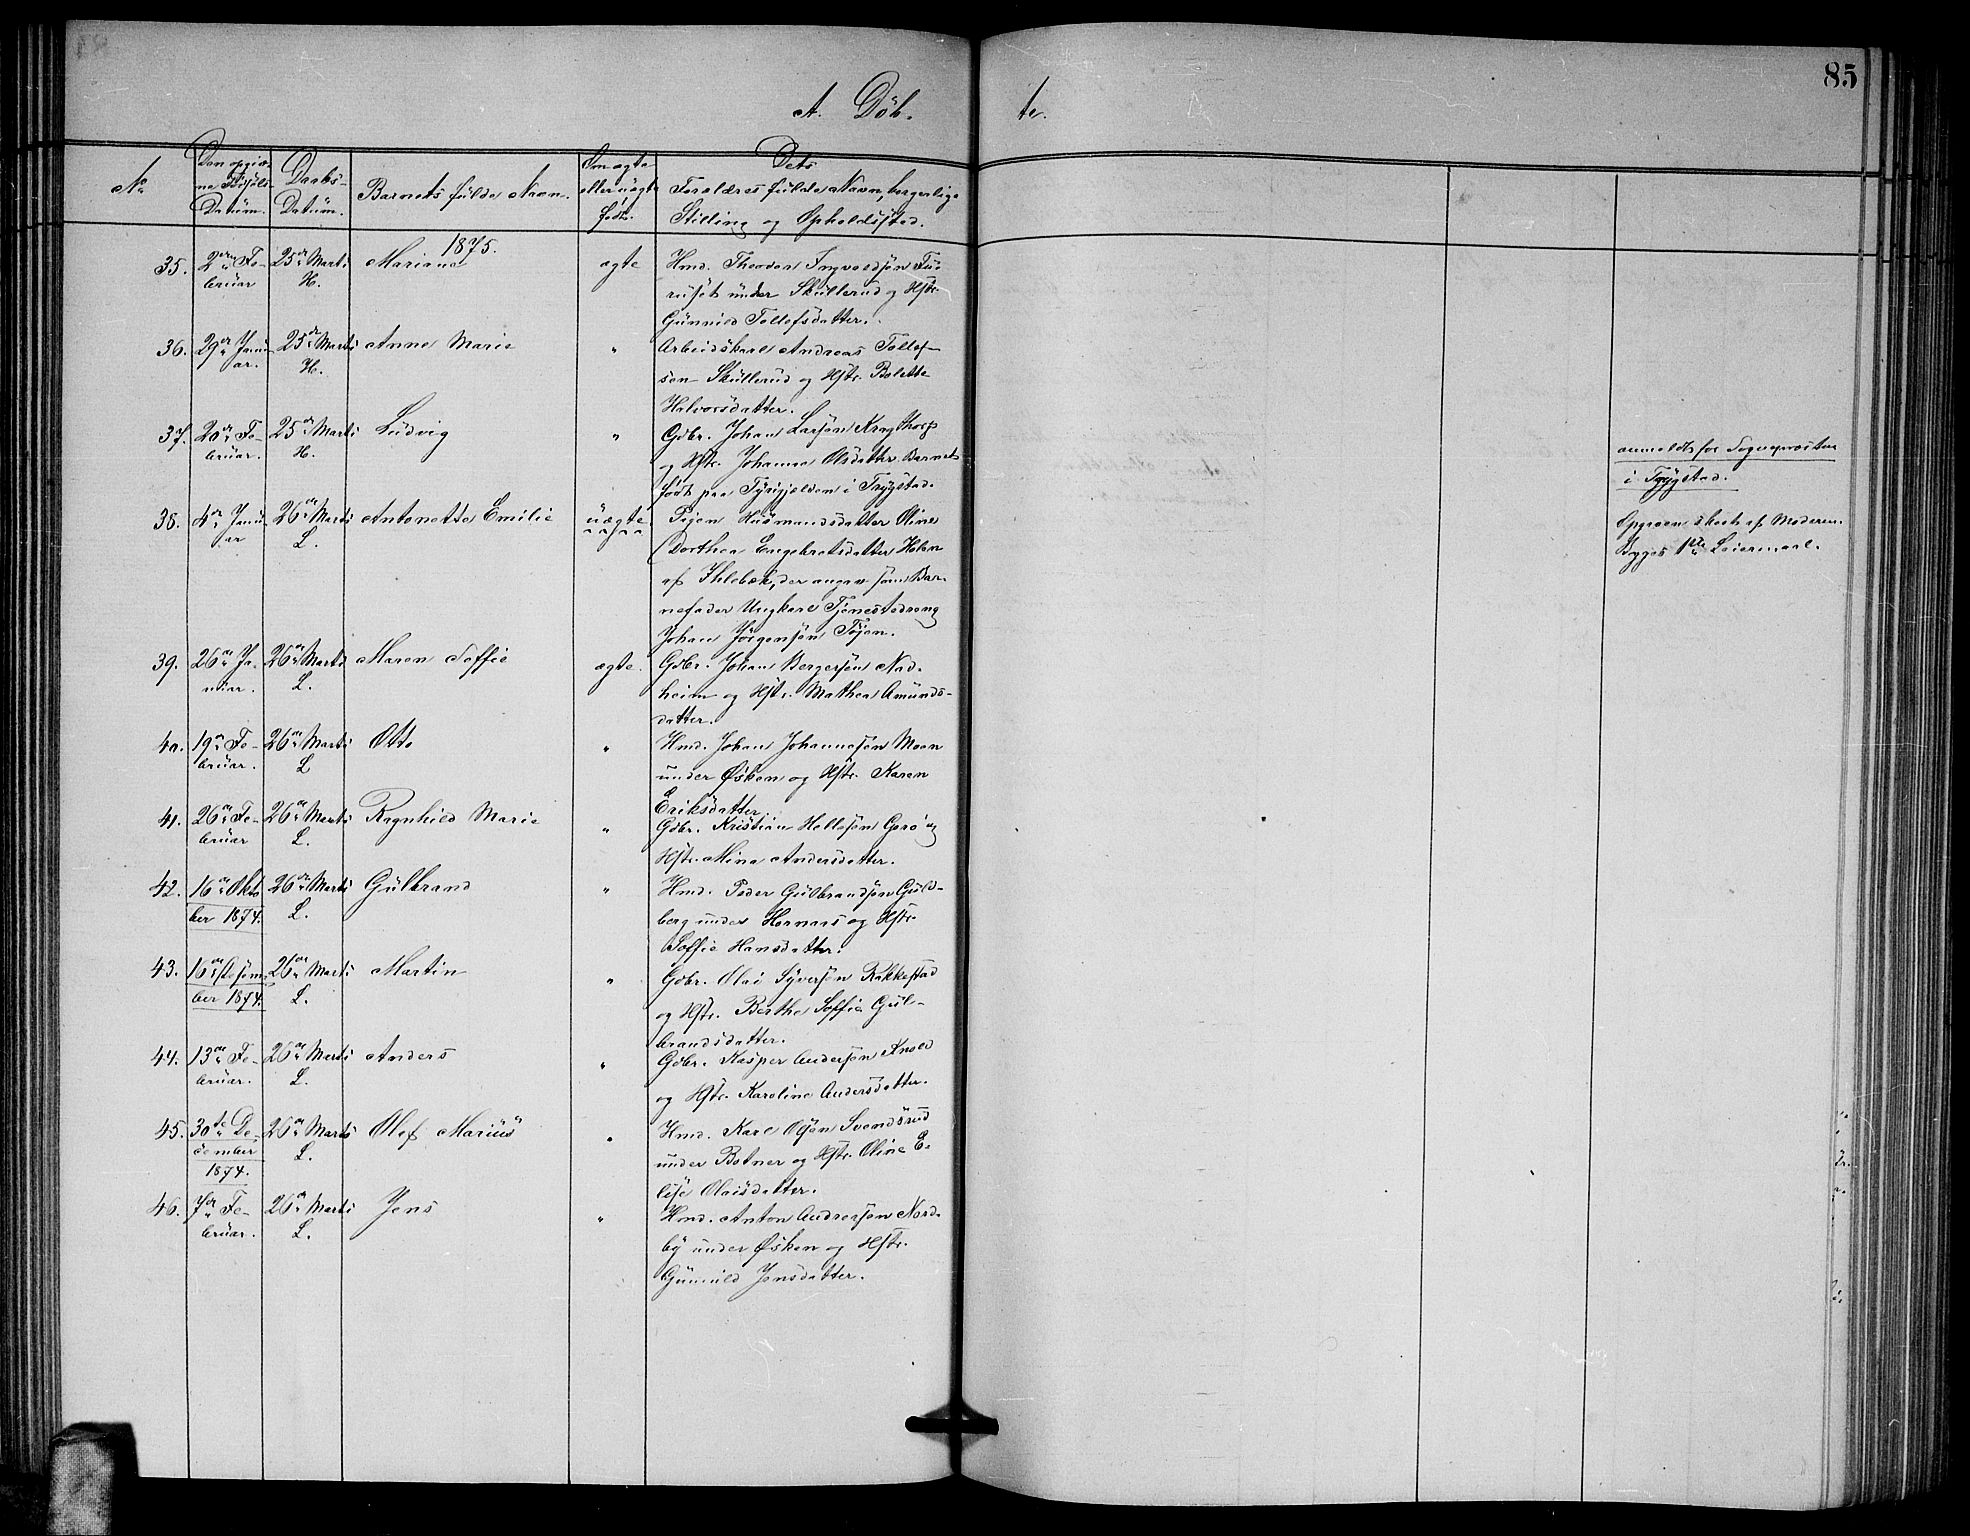 85
A. Döb- te.
No
Den opgiv-
ne Födsels-
Datum.
Daabs-
Datum.
Barnets fulde Navn.
Om ægte
eller uægte
født.
Dets
Forældres fulde Navn, borgerlige
Stilling og Opholdssted.
1875.
35. 2den Fe- 25de Marts Mariane ægte Hmd. Theodor Ingvaldsøn Fu-
bruar H. ruset under Skullerud og Hstr.
Gunnild Tollefsdatter.
36. 29de Janu- 25de Marts Anne Marie " Arbeidskarl Andreas Tollef-
ar. H. sen Skullerud og Hstr. Bolette
Halvorsdatter.
37. 20de Fe- 25de Marts Ludvig " Gdbr. Johan Larsøn Kragthorp
bruar. H. og Hstr. Johanne Olsdatter. Barnet
født paa Tyrigjelden i Trygstad.
anmeldt for Sognepræsten
i Trygstad.
38. 4de Janu- 26de Marts Antonette Emilie uægte Pigen Husmandsdatter Oline
ar L. Dorthea Engebretsdatter Holen
af Ihlebæk, der angav som Bar-
nefader Ungkarl Tjenestedreng
Johan Jørgensøn Tøien.
Opgaven skeet af Moderen.
Begges 1ste Leiermaal.
39. 26de Ja- 26de Marts Maren Soffie ægte. Gdbr. Johan Bergersøn Nad-
nuar. L. heim og Hstr. Mathea Amunds-
datter.
40. 19de Fe- 26de Marts Otto " Hmd. Johan Johannesøn Moen
bruar. L under Øsken og Hstr. Karen
Eriksdatter
41. 26de Fe- 26de Marts Ragnhild Marie " Gdbr. Kristian Hellesøn Gprø og
bruar L. Hstr. Mina Andersdatter.
42. 16de Okto 26de Marts Gulbrand " Hmd. Peder Gulbrandsøn Guld-
ber 1874. L. berg under Hornæs og Hstr.
Soffie Hansdatter.
43. 16de Desem- 26de Marts Martin " Gdbr. Olai Syversøn Rakkestad
ber 1874. L. og Hstr. Berthe Soffie Gul-
brandsdatter.
44. 13de Fe- 26de Marts Anders " Gdbr. Kasper Andersøn Knold
bruar. L. og Hstr. Karoline Andersdatter.
45. 30te De- 26de Marts Olef Marius " Hmd. Karl Olsøn Svendsrud
cember L. under Botner og Hstr. Oline E-
1874. lise Olaisdatter.
46. 7de Fe- 26de Marts Jens " Hmd. Anton Andreasøn Nord-
bruar. L. by under Øsken og Hstr.
Gunnild Jensdatter.